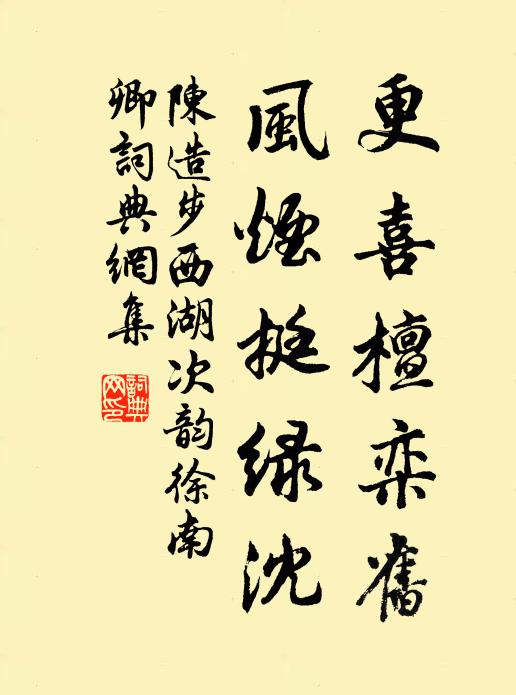 更喜檀奕舊
風煙挺緑沈
陳造步西湖次韵徐南
卿詞典網集
詞典网印